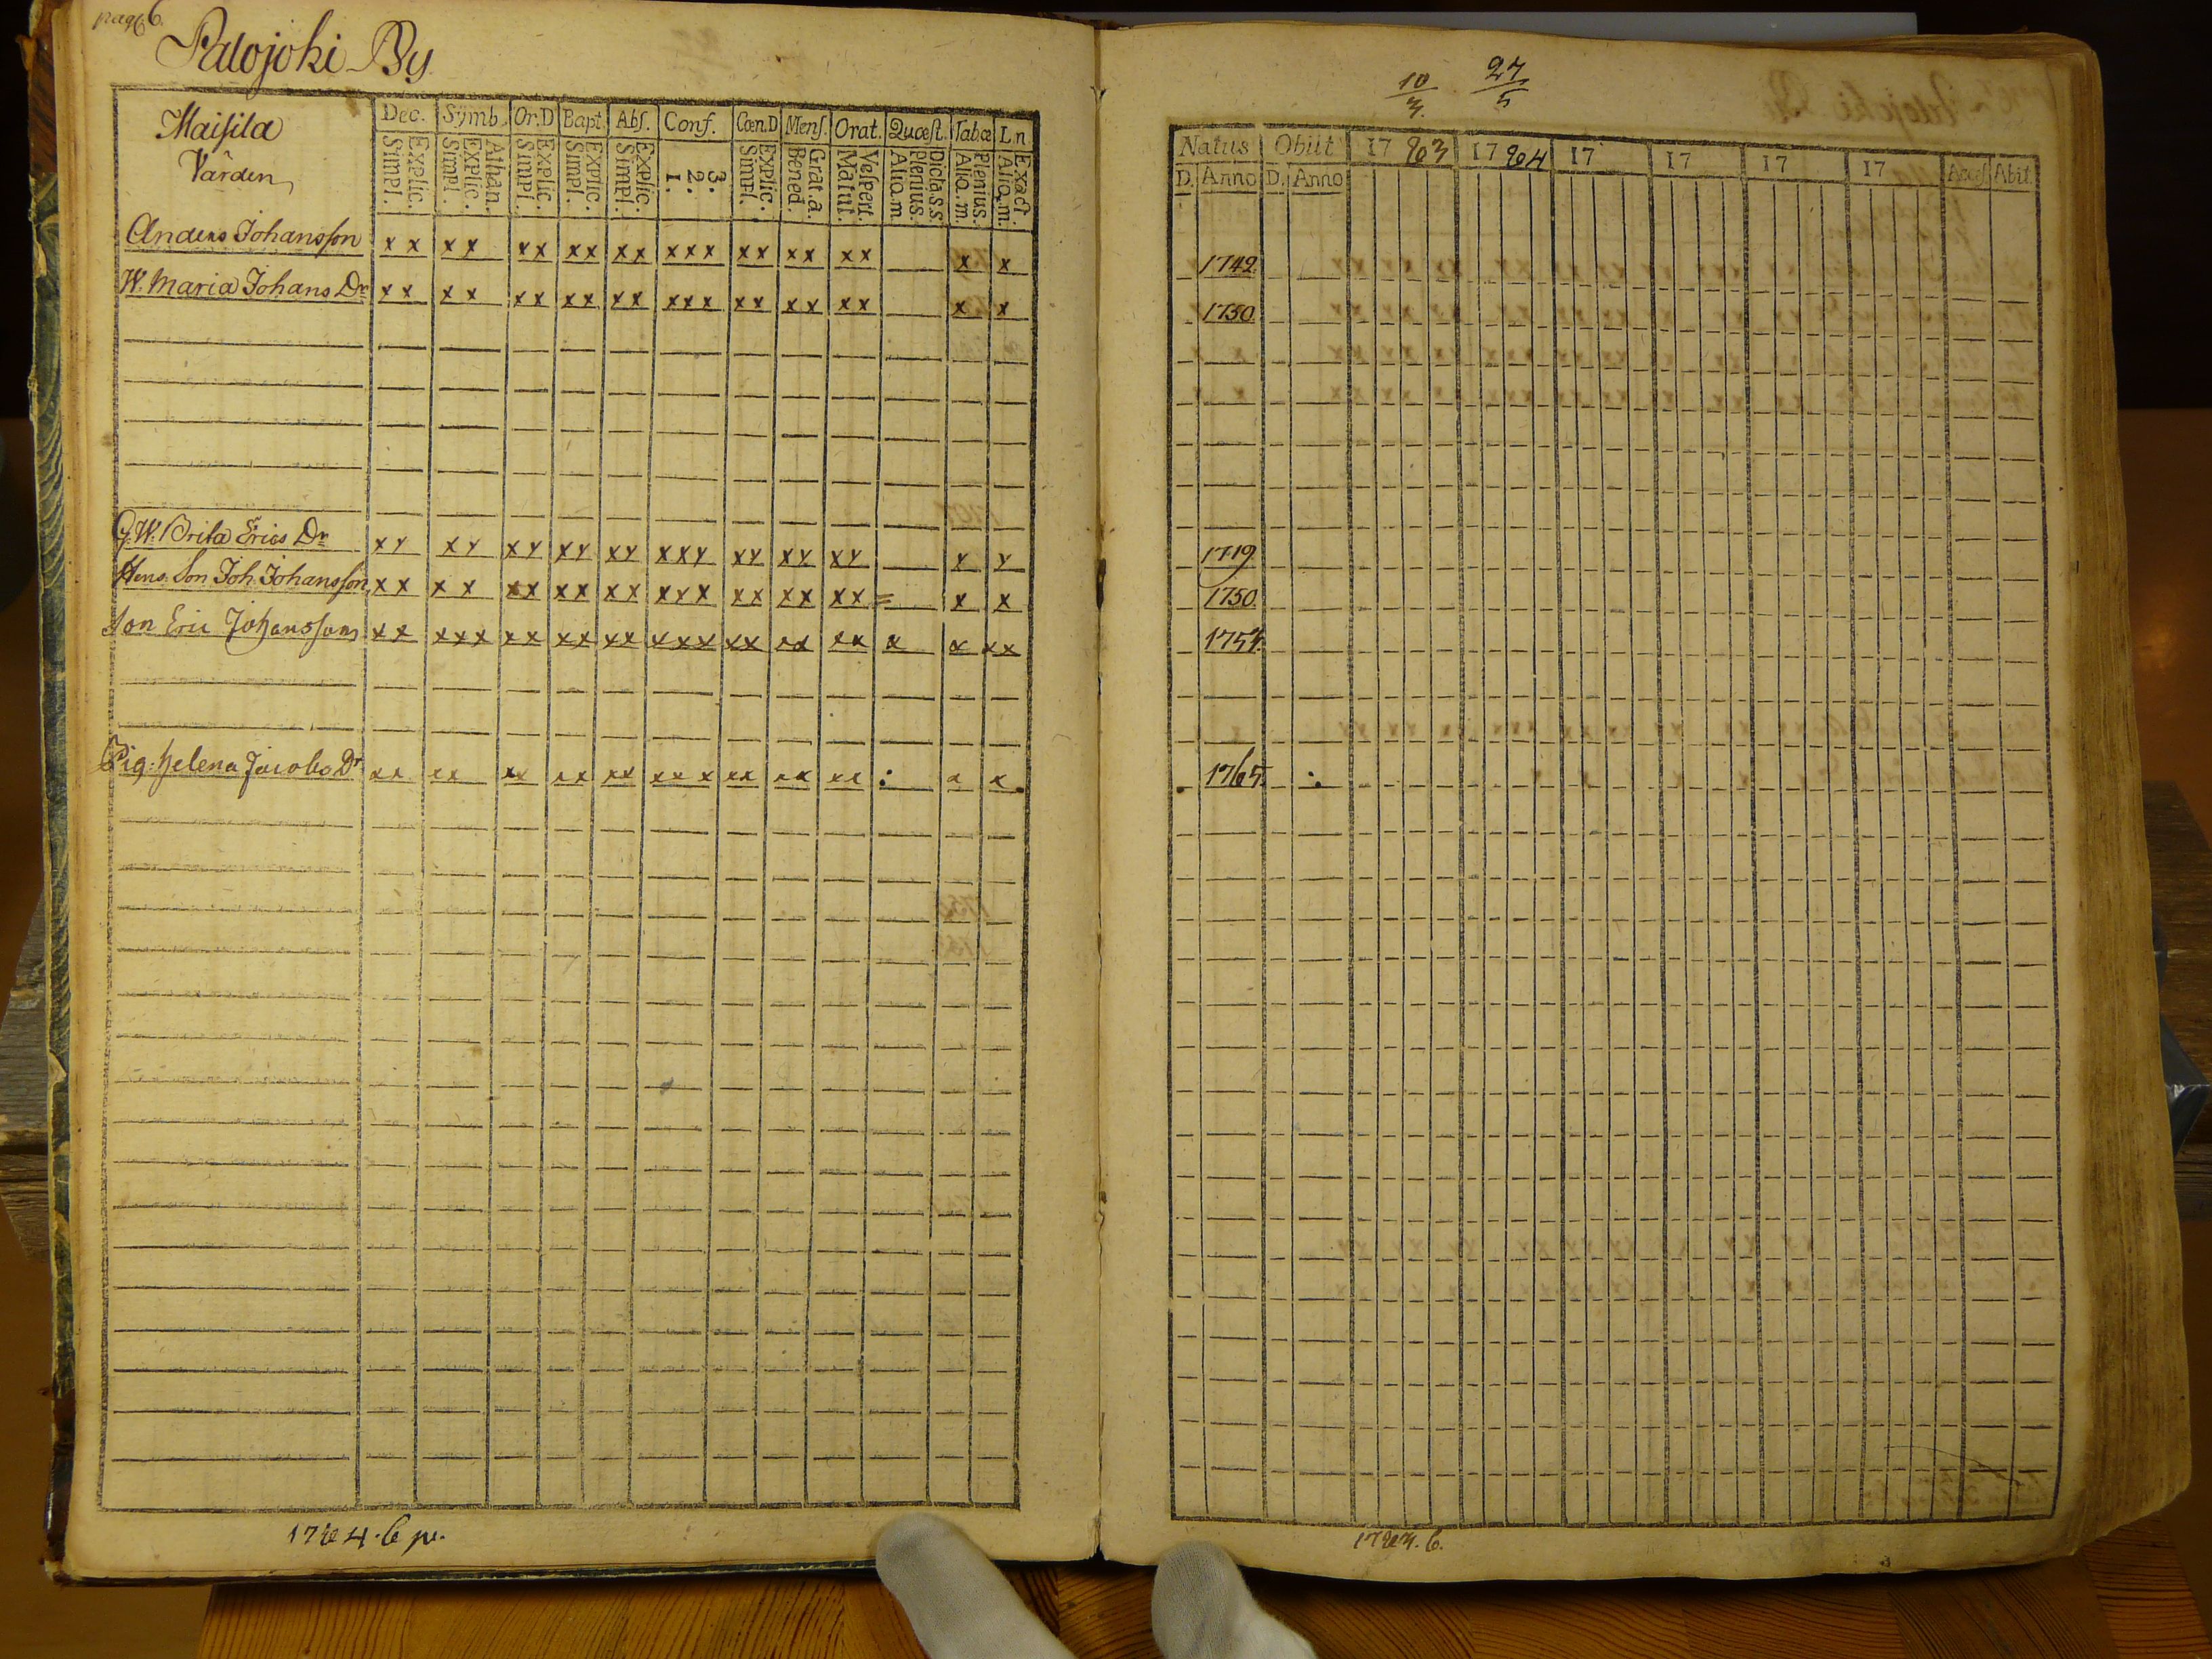 pag 6.
Palojoki By
Maisila
Vården
Dec. Symb. Or.D Bapt. Abs. Conf. Cœn.D Mens. Orat. Quæst. Tabæ Ln
Explic. Simpl. Athan. Explic. Simpl. Explic. Simpl. Explic. Simpl. Explic. Simpl. 3: 2: 1. Explic. Simpl. Grat.a. Bened. Vespert. Matut. Dicta s.s. Plenius. Aliq.m. Plenius. Aliq.m. Exact. Aliq.m.
Anders Johansson x x x x x x x x x x x x x x x x x x x x x
W. Maria Johans Dr x x x x x x x x x x x x x x x x x x x x x
G. W. Brita Erics Dr x x x x x x x x x x x x x x x x x x x x x
Hens Son Joh. Johansson x x x x x x x x x x x x x x x x x x x = x x
Son Eric Johansson x x x x x x x x x x x x x x x x x x x x x x x x
Pig. Helena Jacobs Dr x x x x x x x x x x x x x x x x x x x : x x
1784. 6 p.
10/3. 27/5
Natus Obiit 17 83 17 84 17 17 17 17 Acces. Abit.
D. Anno D. Anno
1742
1750
1719
1750
1754.
1765.
1784. 6.